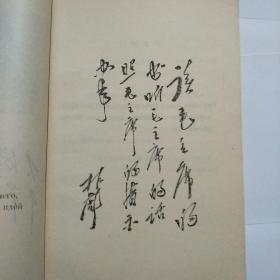 读毛主席的
书听毛主席的话
照毛主席的指示
办事
林彪
ного,
идей